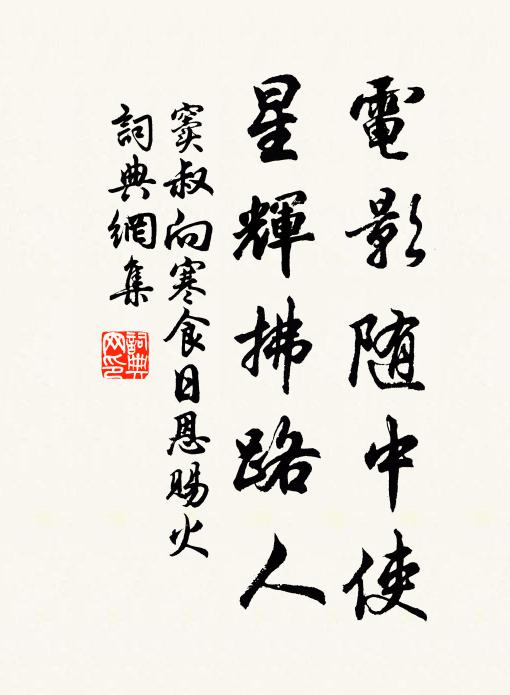 電影随中使
星輝拂路人
竇叔向寒食日恩賜火
詞典網集
詞典網印